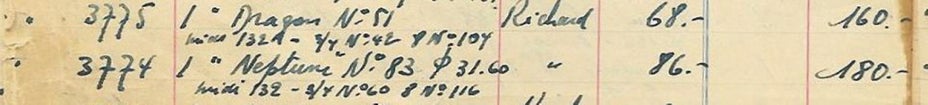 " 3775 1 " Dragon No 51 Richard 68.- 160.-
midi 132A - 3/4 No 42 8 No 104
3774 1 " Neptune" No 83 $ 31.60 " 86.- 180.-
midi 132 - 3/4 No 60 8 No 116